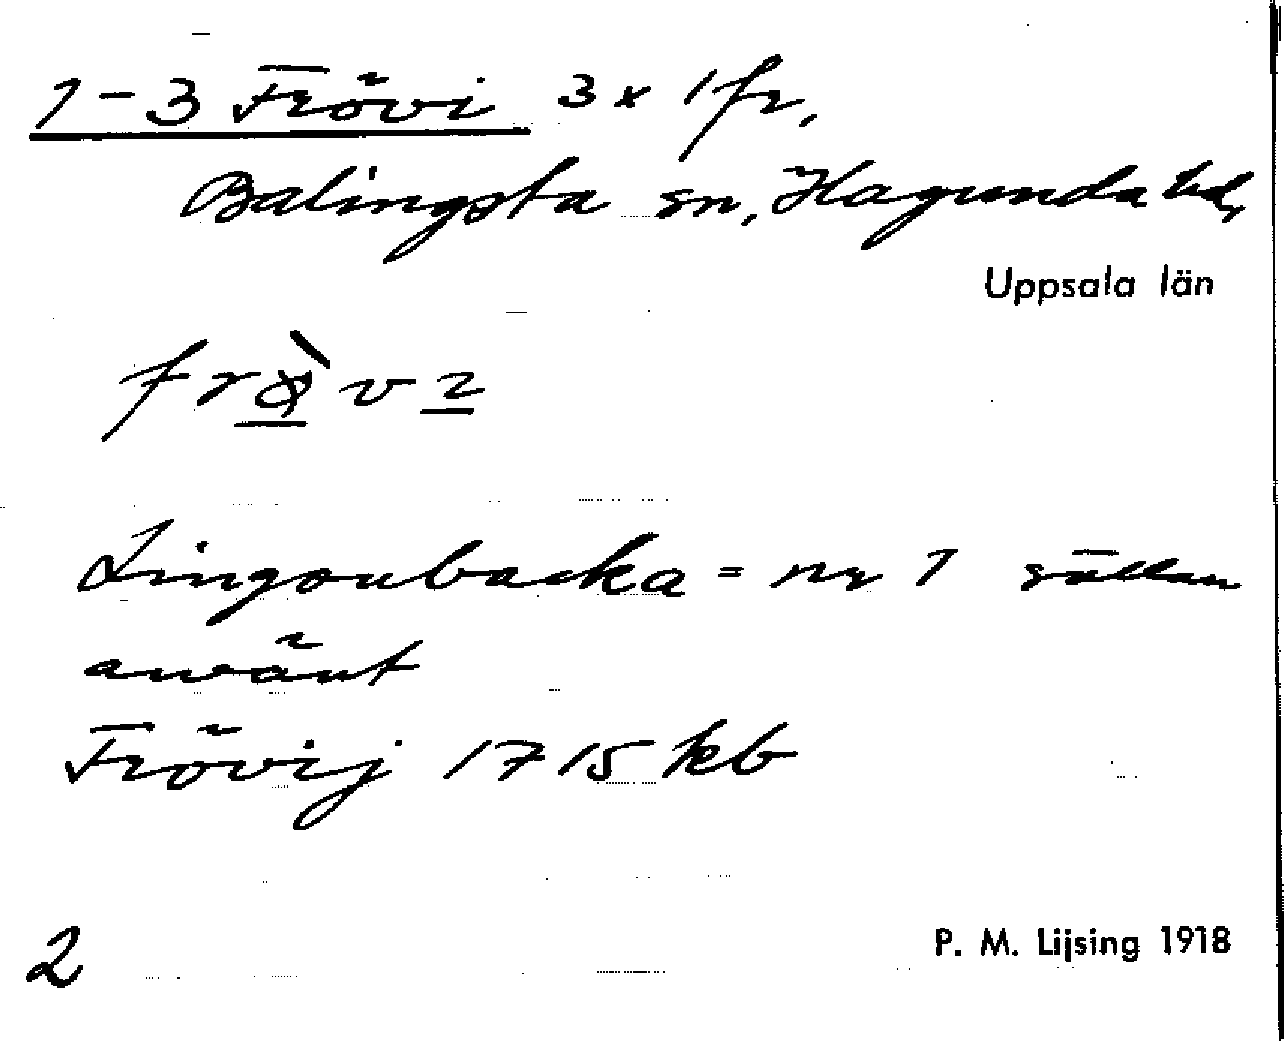 1-3 Frövi 3 x 1 fr,
Balingsta sn, Hagunda hd,
Uppsala län
Lingonbacka = nr 1 sällan
använt
Frövij 1715 kb
2
P. M. Lijsing 1918